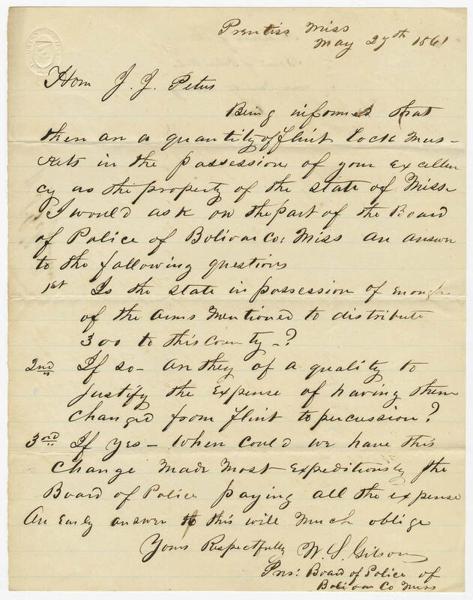 Prentiss Miss
May 27th 1861
Hon J. J. Pettus
Being informed that
then an a quantity of flint lock Mus-
kets in the possession of your excellen-
cy as the property of the state of Miss
I would ask on the part of the Board
of Police of Bolivar Co; Miss an answer
to the following questions
1st Is the state in possession of enough
of the arms mentioned to distribute
300 to this County-?
2nd If so- an they of a quality to
justify the Expense of having them
changed from flint to percussion?
3rd If Yes- When could we have this
change made most Expeditiously the
Board of Police paying all the expense
An Early answer to this will much oblige
Yours Respectfully W. S. Gibson
Pres: Board of Police of
Bolivar Co Miss